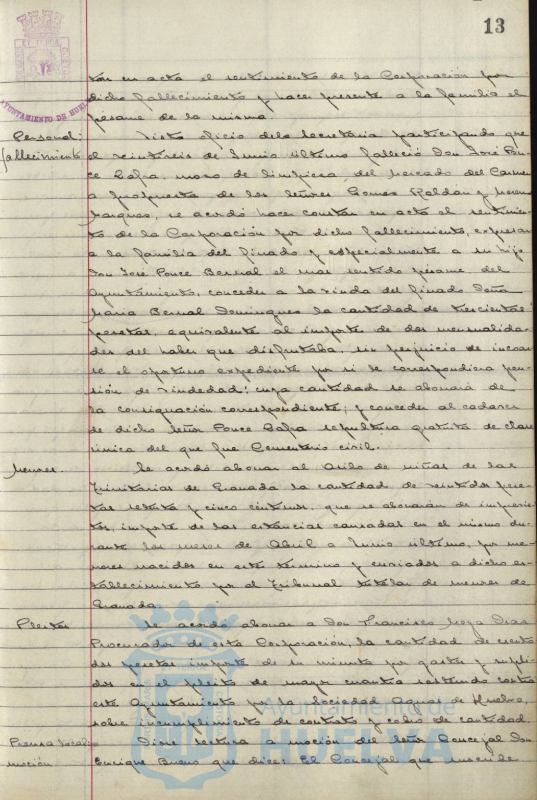 13
AYUNTAMIENTO DE HUELVA
tar en acta el sentimiento de la Corporación por
dicho fallecimiento y hacer presente a la familia el
pésame de la misma.
Personal: Visto oficio de la Secretaria participando que
fallecimiento el veintiseis de Junio último falleció Don José Pon-
ce Safra, mozo de limpieza del Mercado del Carmen
a propuesta de los señores Gomez Roldán y Moreno
Marquez, se acordó hacer constar en acta el sentimien-
to de la Corporación por dicho fallecimiento, expresar
a la familia del finado y especialmente a su hijo
Don José Ponce Bernal el mas sentido pésame del
Ayuntamiento, conceder a la viuda del finado Doña
Maria Bernal Dominguez la cantidad de trescientas
pesetas, equivalente al importe de dos mensualida-
des del haber que disfrutaba, sin perjuicio de incoar-
se el oportuno expediente por si le correspondiera pen-
sión de viudedad; cuya cantidad se abonará de
la consignación correspondiente; y conceder al cadaver
de dicho señor Ponce Safra sepultura gratuita de clase
única del que fue Cementerio civil.
Menores. Se acordó abonar al Asilo de niñas de las
Trinitarias de Granada la cantidad de veintidos pese-
tas setenta y cinco céntimos, que se abonarán de imprevis-
tos, importe de las estancias causadas en el mismo du-
rante los meses de Abril a Junio último, por me-
nores nacidos en este término y enviados a dicho es-
tablecimiento por el Tribunal tutelar de menores de
Granada.
Pleitos Se acordó abonar a Don Francisco Moya Diaz
Procurador de esta Corporación, la cantidad de
pesetas importe de su minuta por gastos y supli-
dos en el pleito de mayor cuantia sostenido contra
este Ayuntamiento por la Sociedad Aguas de Huelva,
sobre incumplimiento de contrato y cobro de cantidad.
Prensa local: Diose lectura a moción del señor Concejal Don
moción Enrique Bueno que dice: El Concejal que suscribe
Ayuntamiento de
HUELVA